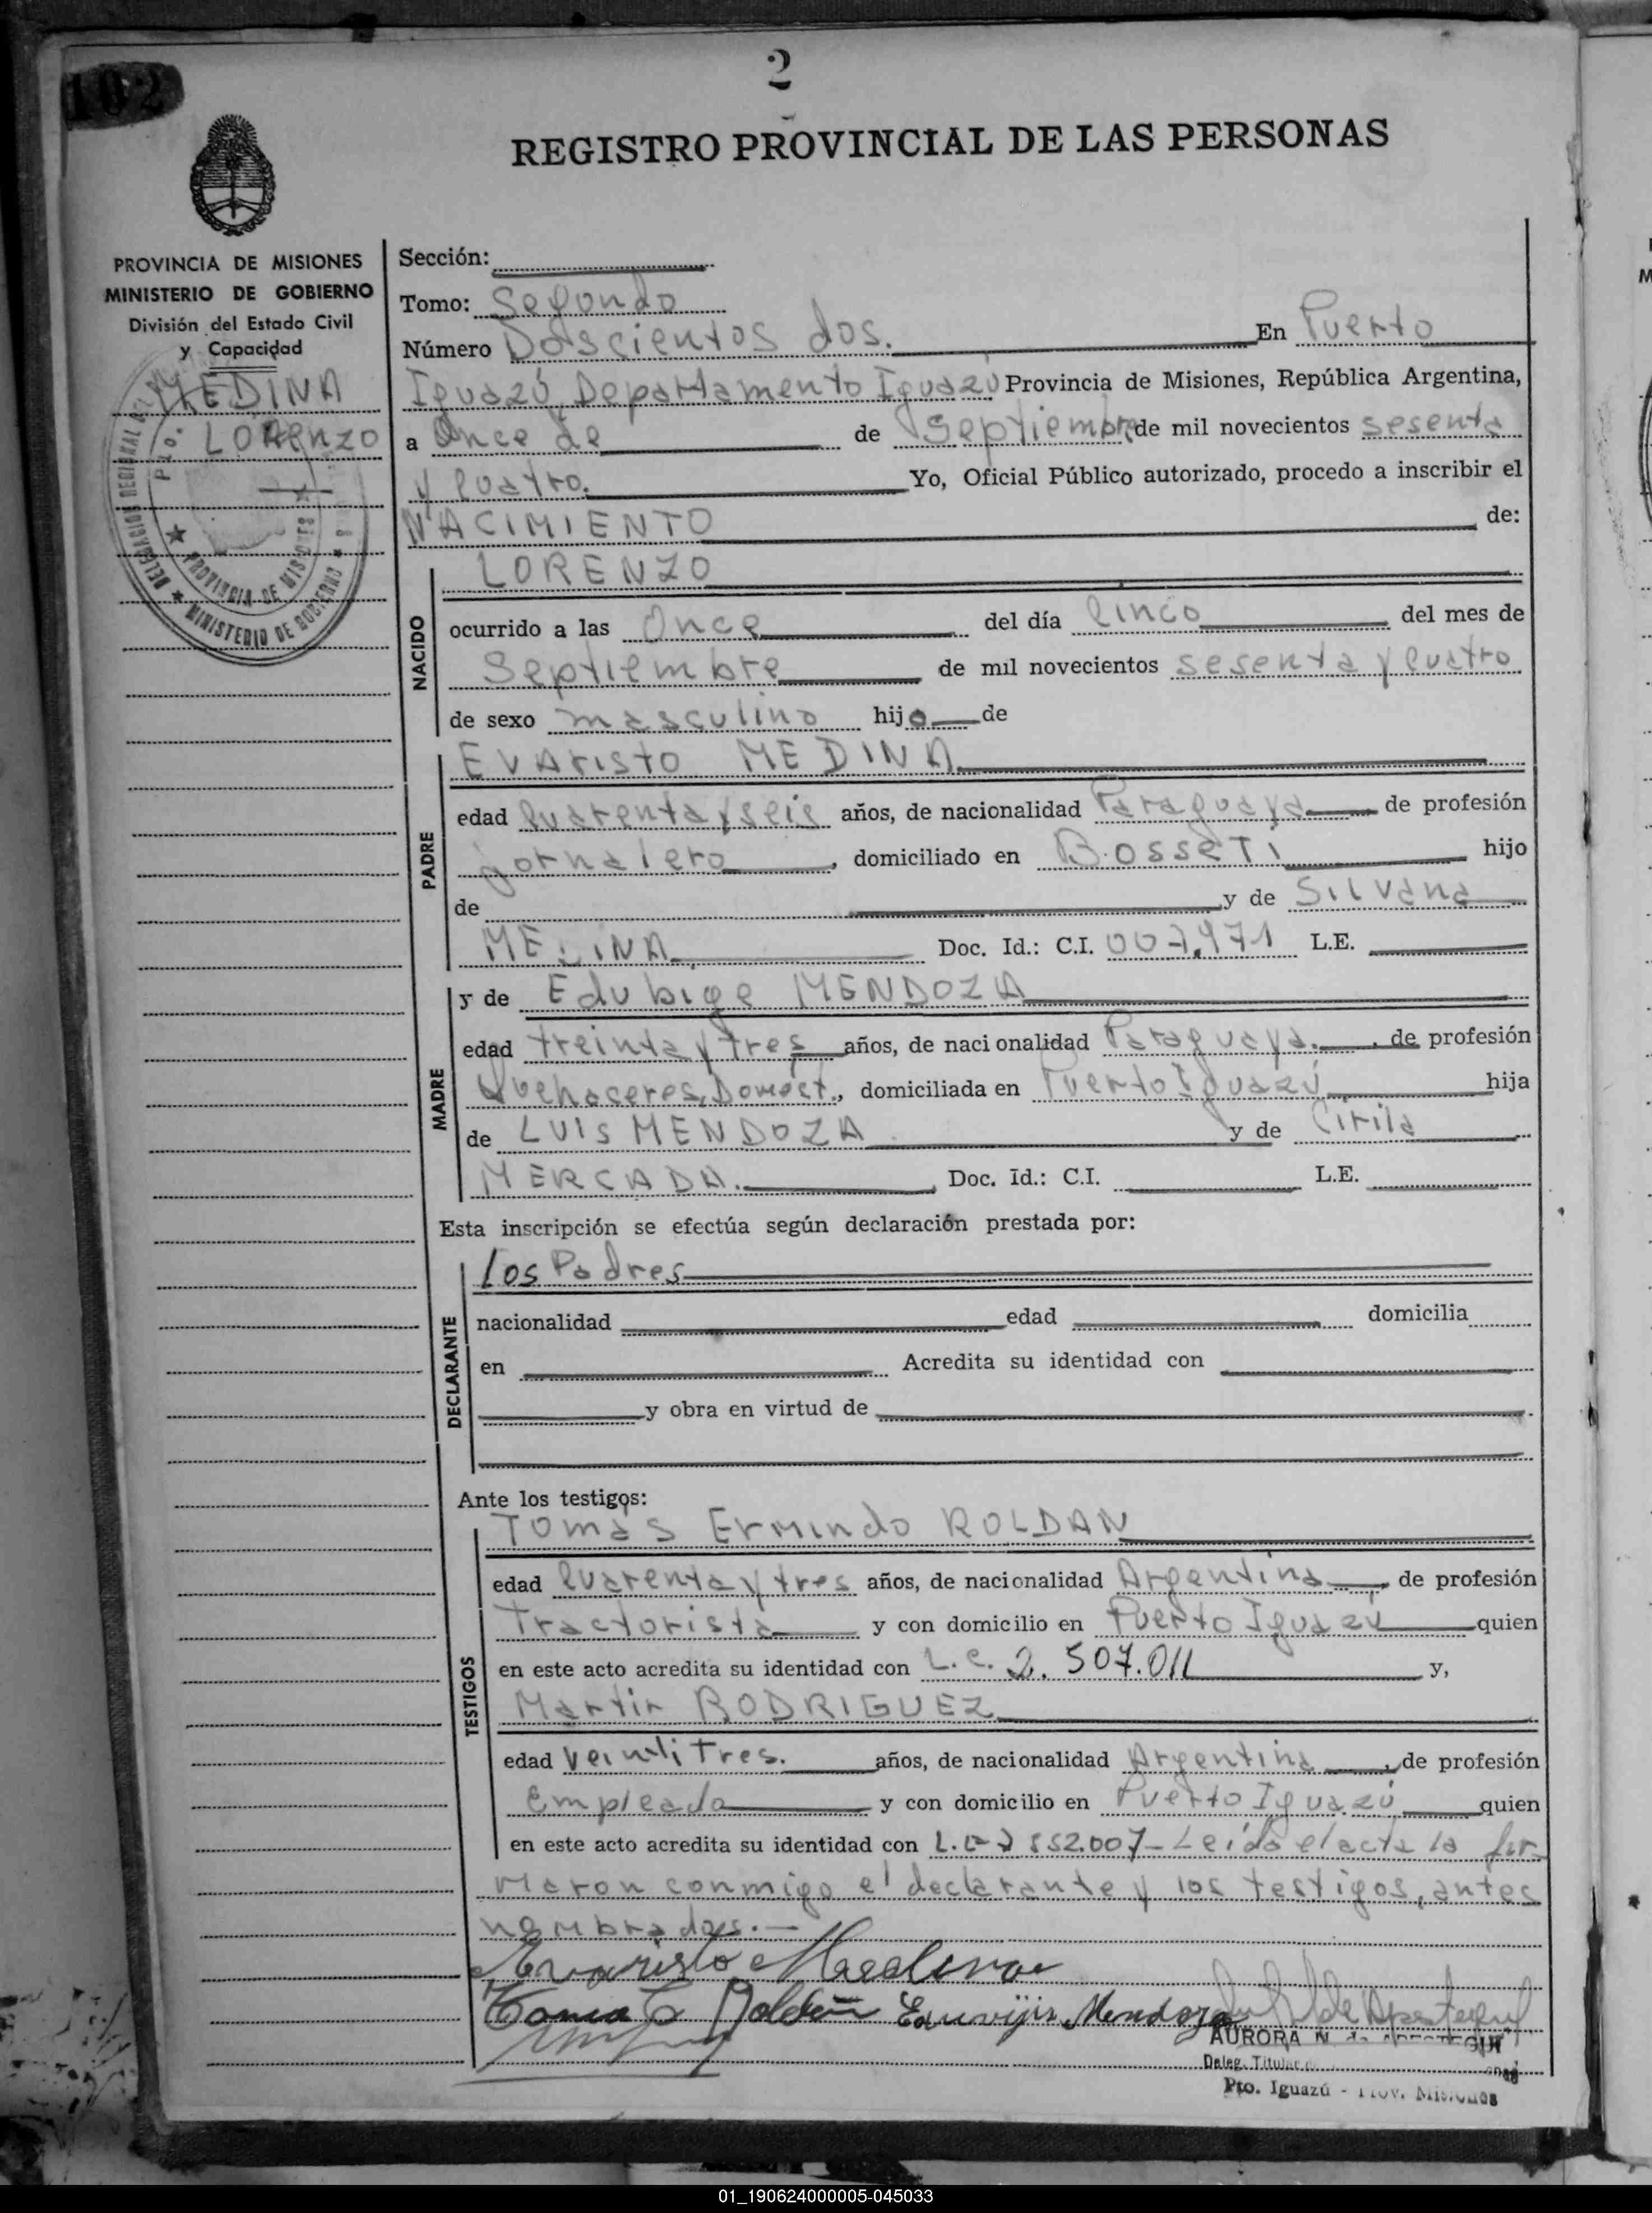 102
2
REGISTRO PROVINCIAL DE LAS PERSONAS
PROVINCIA DE MISIONES
MINISTERIO DE GOBIERNO
División del Estado Civil
y Capacidad
MEDINA
LORENZO
PROVINCIA DE MISIONES
MINISTERIO DE GOBIERNO
Sección:
Tomo: Segundo
Número Doscientos dos. En Puerto
Iguazú Departamento Iguazú Provincia de Misiones, República Argentina,
a Once de de Septiembre de mil novecientos sesenta
y cuatro. Yo, Oficial Público autorizado, procedo a inscribir el
NACIMIENTO de:
NACIDO
LORENZO
ocurrido a las Once del día Cinco del mes de
Septiembre de mil novecientos sesenta y cuatro
de sexo masculino hijo de
PADRE
EVAristo MEDINA
edad Cuarenta y seis años, de nacionalidad Paraguaya de profesión
jornalero, domiciliado en BOSSETI hijo
de y de SILVana
MEDINA Doc. Id.: C.I. 007.971 L.E.
MADRE
y de Edubige MENDOZA
edad treinta y tres años, de nacionalidad Paraguaya. de profesión
Quehaceres Domést., domiciliada en Puerto Iguazú hija
de LUIS MENDOZA y de Cirila
MERCADA. Doc. Id.: C.I. L.E.
Esta inscripción se efectúa según declaración prestada por:
DECLARANTE
Los Padres
nacionalidad edad domicilia
en Acredita su identidad con
y obra en virtud de
Ante los testigos:
TESTIGOS
Tomás Ermindo ROLDAN
edad Cuarenta y tres años, de nacionalidad Argentina, de profesión
Tractorista y con domicilio en Puerto Iguazú quien
en este acto acredita su identidad con L.E. 2.507.011 y,
Martin RODRIGUEZ
edad Veintitres. años, de nacionalidad Argentina, de profesión
Empleado y con domicilio en Puerto Iguazú quien
en este acto acredita su identidad con L.E. 7 552.007- Leída el acta la fir-
maron conmigo el declarante y los testigos, antes
nombrados.-
Evaristo Medina
Roldán Eduvijis Mendoza
AURORA N. de APESTEGUI
Deleg. Titular
Pto. Iguazú - Prov. Misiones
01_190624000005-045033